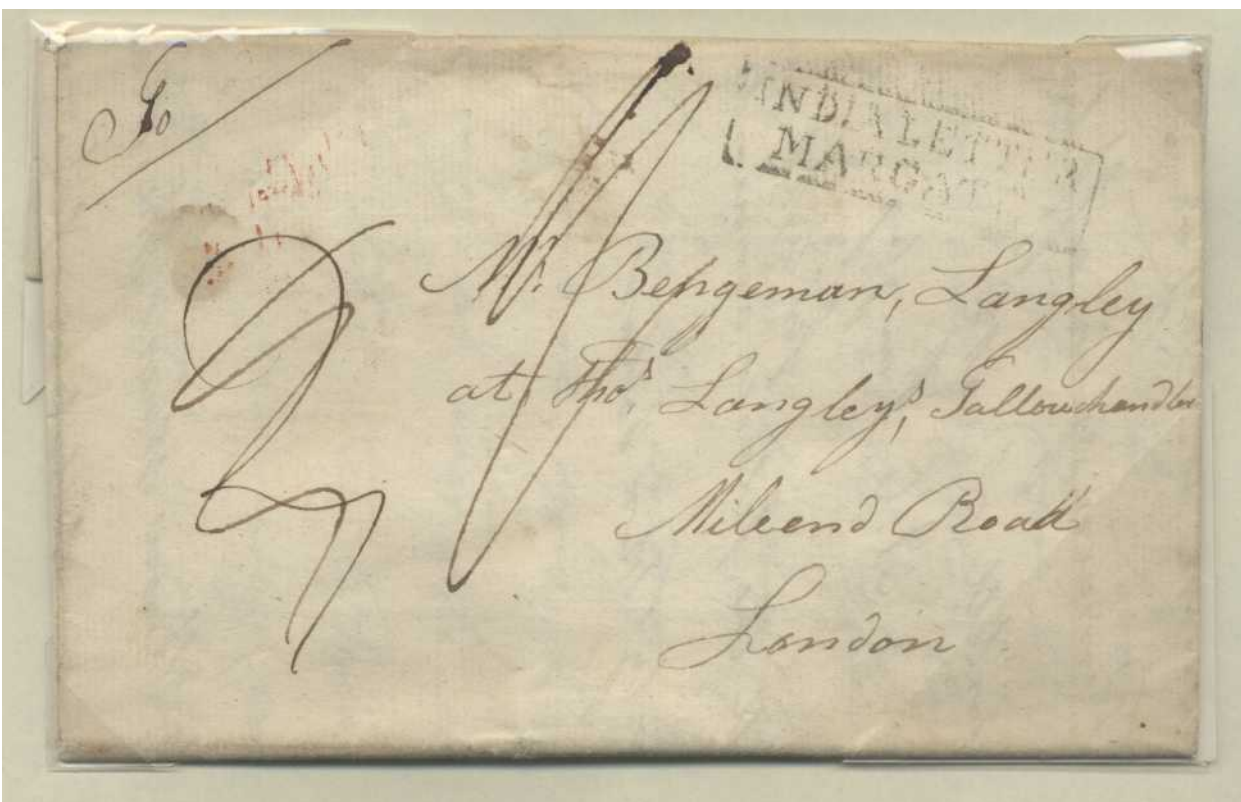 To
INDIA LETTER
MARGATE
Mr. Bengeman, Langley
at Thos. Langleys, Tallowchandler
Mileend Road
London